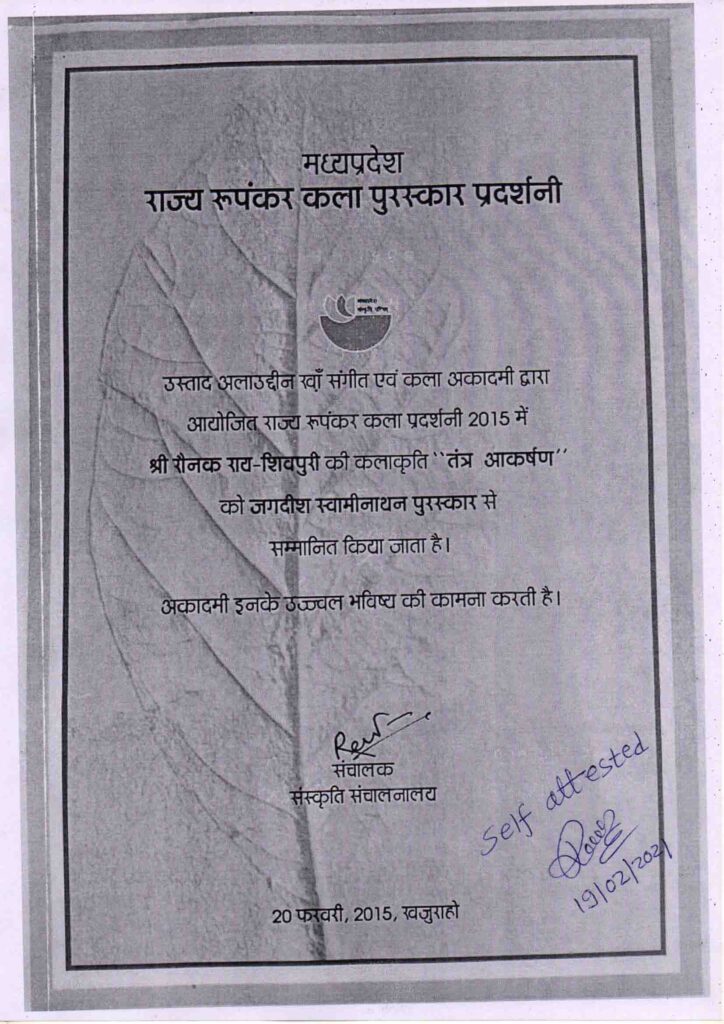 मध्यप्रदेश
राज्य रूपंकर कला पुरस्कार प्रदर्शनी
मध्यप्रदेश
संस्कृति परिषद्
उस्ताद अलाउद्दीन खाँ संगीत एवं कला अकादमी द्वारा
आयोजित राज्य रूपंकर कला प्रदर्शनी 2015 में
श्री रौनक राय-शिवपुरी की कलाकृति ``तंत्र आकर्षण''
को जगदीश स्वामीनाथन पुरस्कार से
सम्मानित किया जाता है।
अकादमी इनके उज्ज्वल भविष्य की कामना करती है।
संचालक
संस्कृति संचालनालय
self attested
19/02/2021
20 फरवरी, 2015, खजुराहो